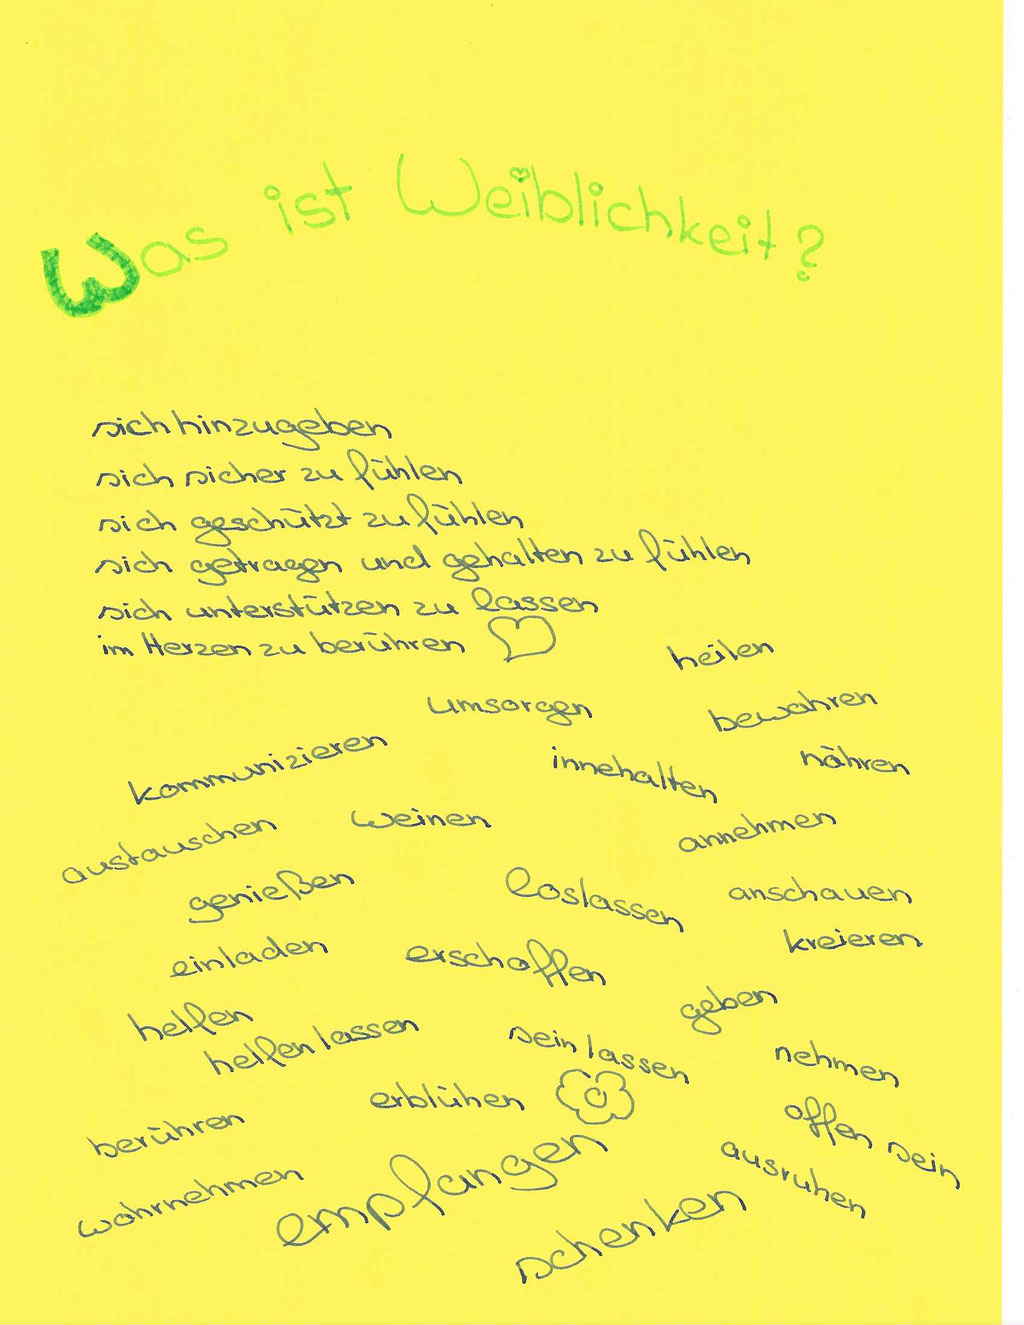 Was ist Weiblichkeit?
sich hinzugeben
sich sicher zu fühlen
sich geschützt zu fühlen
sich getragen und gehalten zu fühlen
sich unterstützen zu lassen
im Herzen zu berühren
heilen
umsorgen
bewahren
kommunizieren
innehalten
nähren
austauschen
weinen
annehmen
genießen
loslassen
anschauen
einladen
erschaffen
kreieren
helfen
geben
helfen lassen
sein lassen
nehmen
erblühen
berühren
offen sein
wahrnehmen
empfangen
ausruhen
schenken